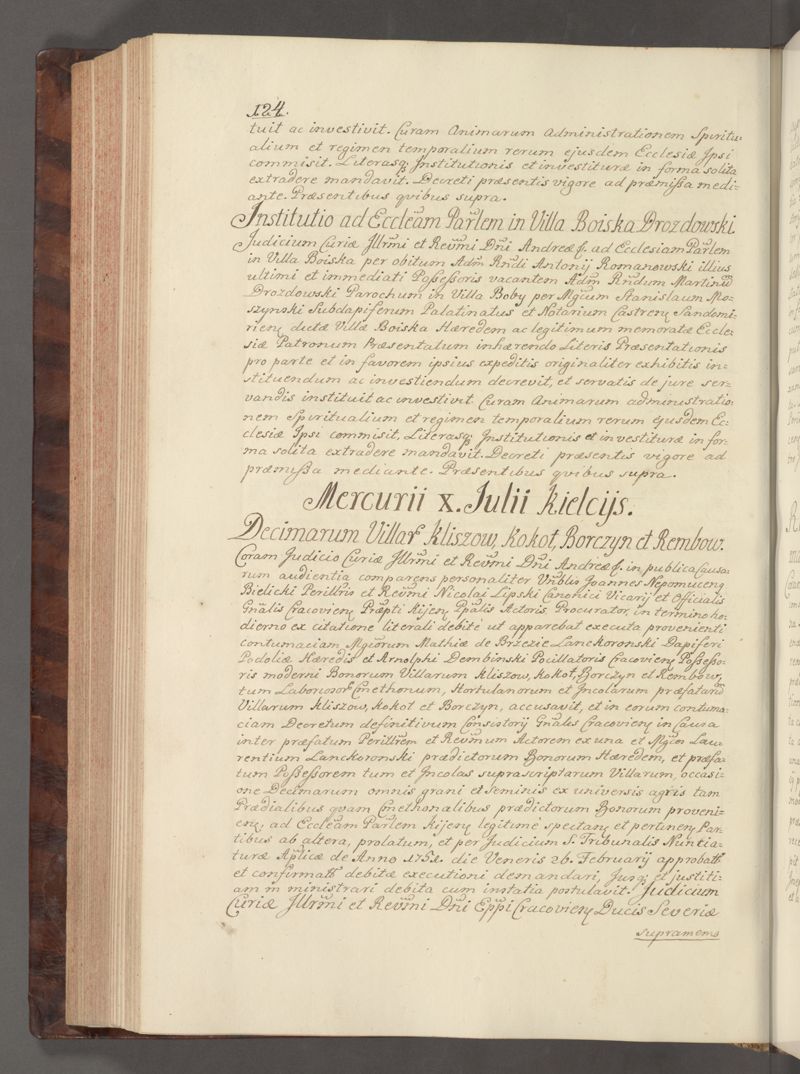 124.
tuit ac investivit. Curam Animarum Administrationem Spiritu-
alium et regimen temporalium rerum ejusdem Ecclesiæ Ipsi
commisit. Literasq; Institutionis et investituræ in forma solita
extradere mandavit. Decreti præsentis vigore ad præmissa medi-
ante. Præsentibus qvibus supra.
Institutio ad Eccleãm Parlem in Villa Boiska Drozdowski.
Judicium Curiæ Jllrmi et Revmi Dni Andreæ f. ad Ecclesiam Parlem
in Villa Boiska per obitum Adm Rndi Antonij Romanowski illius
ultimi et immediati Possessoris vacantem Adm Rndum Martinũ
Drozdowski Parochum in Villa Boby per Mgcum Stanislaum Mo=
szynski Subdapiferum Palatinatus et Notarium Castren; Sandomi=
rien; dictæ Villæ Boiska Hæredem ac legitimum memoratæ Eccle=
siæ Patronum Præsentatum inhærendo Literis Præsentationis
pro parte et in favorem ipsius expeditis originaliter exhibitis in=
stituendum ac investiendum decrevit, et servatis de jure ser=
vandis instituit ac investivit. Curam Animarum administratio=
nem Spiritualium et regimen temporalium rerum ejusdem Ec=
clesiæ Ipsi commisit, Literasq; Institutionis et investituræ in for=
ma solita extradere mandavit. Decreti præsentis vigore ad
præmissa mediante. Præsentibus qvibus supra.
Mercurii x. Julii Kielcijs.
Decimarum Villar Kliszow, Kokot, Borczyn et Rembow.
Coram Judicio Curiæ Jllrmi et Revmi Dni Andreæ f. in publica Causa=
rum audientia comparens personaliter Vnblis Joannes Nepomucenq
Bielicki Perillris et Revmi Nicolai Lipski Canonici Vicarij et Officialis
Gnalis Cracovien; Præpti Kijen; Ppalis Actoris Procurator, in termino ho=
dierno ex citatione literali debite ut apparebat executa provenienti
contumaciam Mgcorum Mathiæ de Brzezie Lanckoronski Dapiferi
Podoliæ Hæredis et Arnolphi Dembinski Pocillatoris Cracovien; Possesso=
ris moderni Bonorum Villarum Kliszow, Kokot, Borczyn et Rembow,
tum Laboriosor Cmethonum, Hortulanorum et Jncolarum præfatarũ
Villarum Kliszow, Kokot et Borczyn, accusavit, et in eorum contuma=
ciam Decretum definitivum Consistorij Gnalis Cracovien; in Causa
inter præfatum Perillrem et Revmum Actorem ex una et Mgcos Lau=
rentium Lanckoronski prædictorum Bonorum Hæredem, et præfa=
tum Possessorem tum et Jncolas suprascriptarum Villarum, occasi=
one Decimarum omnis grani et seminis ex universis agris tam
Prædialibus qvam Cmethonalibus prædictorum Bonorum proveni=
en; ad Eccleãm Parlem Kijen; legitime spectan; et pertinen; Par=
tibus ab altera, prolatum, et per Judicium S. Tribunalis Nuntia=
turæ Aplicæ de Anno 1752. die Veneris 26. Februarij approbatũ
et confirmatũ debitæ executioni demandari, Jusq; et justiti=
am m ministrari debita cum instatia postulavit. Judicium
Curiæ Jllrmi et Revmi Dni Eppi Cracovien; Ducis Severiæ
supramems